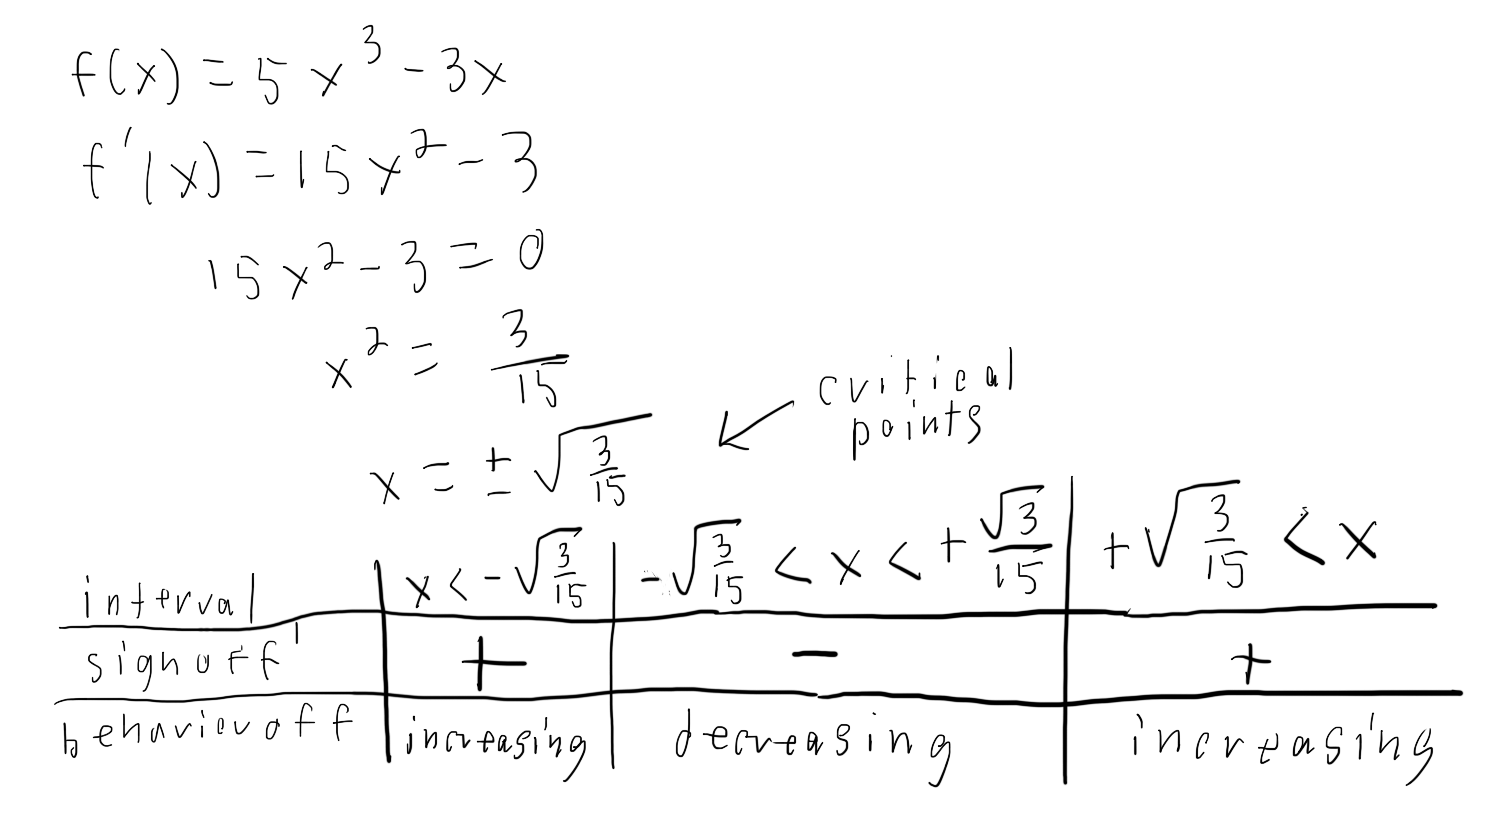 f(x) = 5x³ - 3x
f'(x) = 15x² - 3
15x² - 3 = 0
x² = 3/15
x = ±√(3/15)
critical
points
interval x < -√(3/15) -√(3/15) < x < +√3/15 +√(3/15) < x
sign of f' + - +
behavior of f increasing decreasing increasing